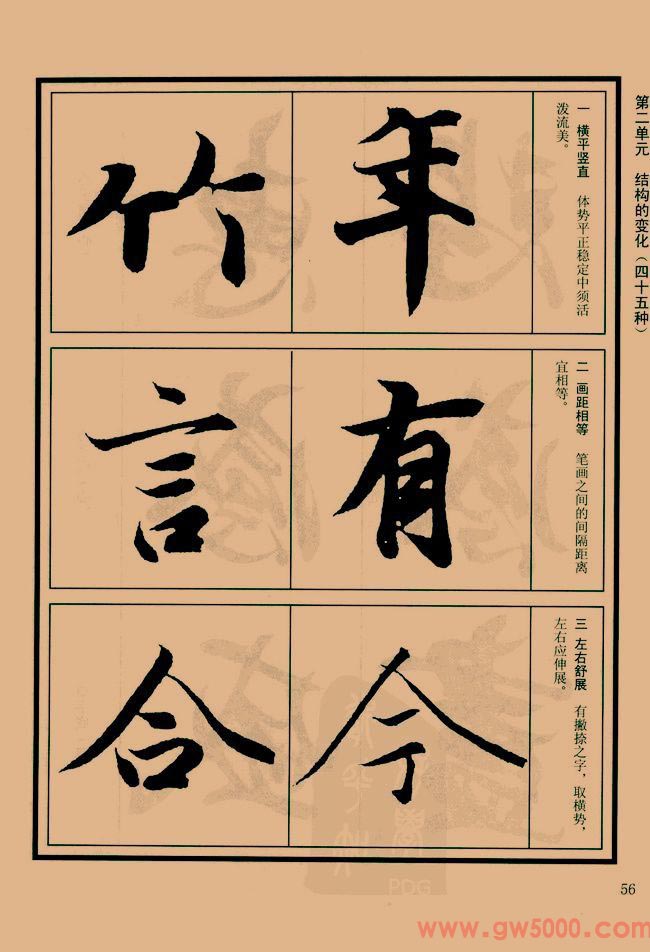 第二单元 结构的变化（四十五种）
一 横平竖直 体势平正稳定中须活
泼流美。
年
竹
二 画距相等 笔画之间的间隔距离
宜相等。
有
言
三 左右舒展 有撇捺之字，取横势，
左右应伸展。
今
合
PDG
56
www.gw5000.com